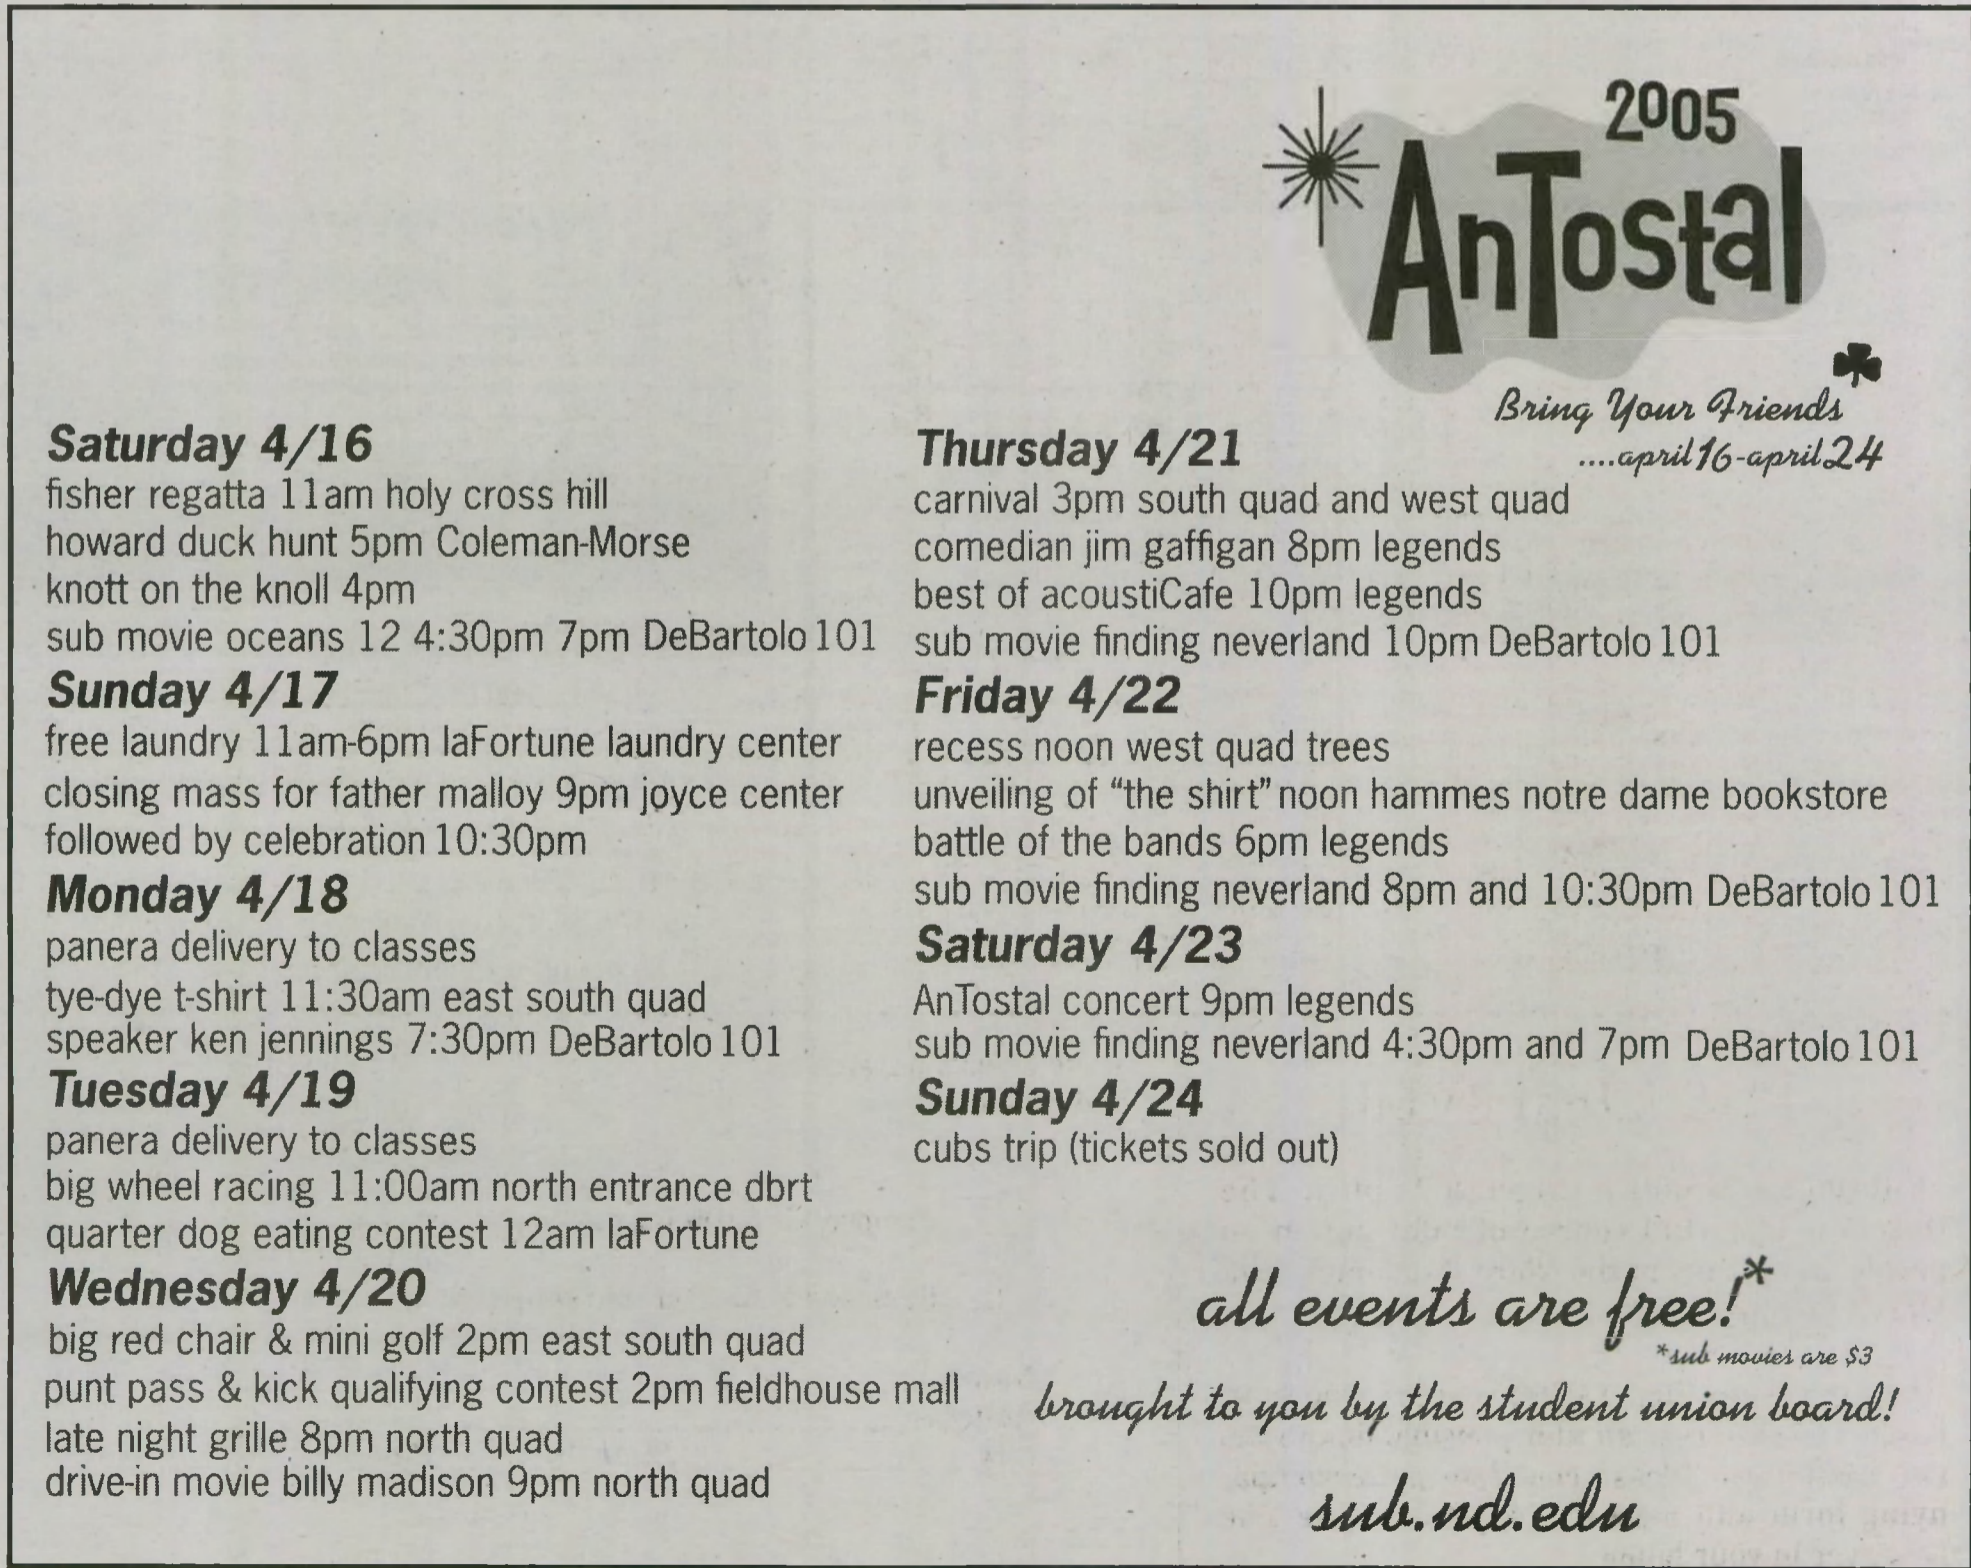 2005
AnTostal
Bring Your Friends
....april 16-april 24
Saturday 4/16
fisher regatta 11am holy cross hill
howard duck hunt 5pm Coleman-Morse
knott on the knoll 4pm
sub movie oceans 12 4:30pm 7pm DeBartolo 101
Sunday 4/17
free laundry 11am-6pm laFortune laundry center
closing mass for father malloy 9pm joyce center
followed by celebration 10:30pm
Monday 4/18
panera delivery to classes
tye-dye t-shirt 11:30am east south quad
speaker ken jennings 7:30pm DeBartolo 101
Tuesday 4/19
panera delivery to classes
big wheel racing 11:00am north entrance dbrt
quarter dog eating contest 12am laFortune
Wednesday 4/20
big red chair & mini golf 2pm east south quad
punt pass & kick qualifying contest 2pm fieldhouse mall
late night grille 8pm north quad
drive-in movie billy madison 9pm north quad
Thursday 4/21
carnival 3pm south quad and west quad
comedian jim gaffigan 8pm legends
best of acoustiCafe 10pm legends
sub movie finding neverland 10pm DeBartolo 101
Friday 4/22
recess noon west quad trees
unveiling of “the shirt” noon hammes notre dame bookstore
battle of the bands 6pm legends
sub movie finding neverland 8pm and 10:30pm DeBartolo 101
Saturday 4/23
AnTostal concert 9pm legends
sub movie finding neverland 4:30pm and 7pm DeBartolo 101
Sunday 4/24
cubs trip (tickets sold out)
all events are free!*
*sub movies are $3
brought to you by the student union board!
sub.nd.edu